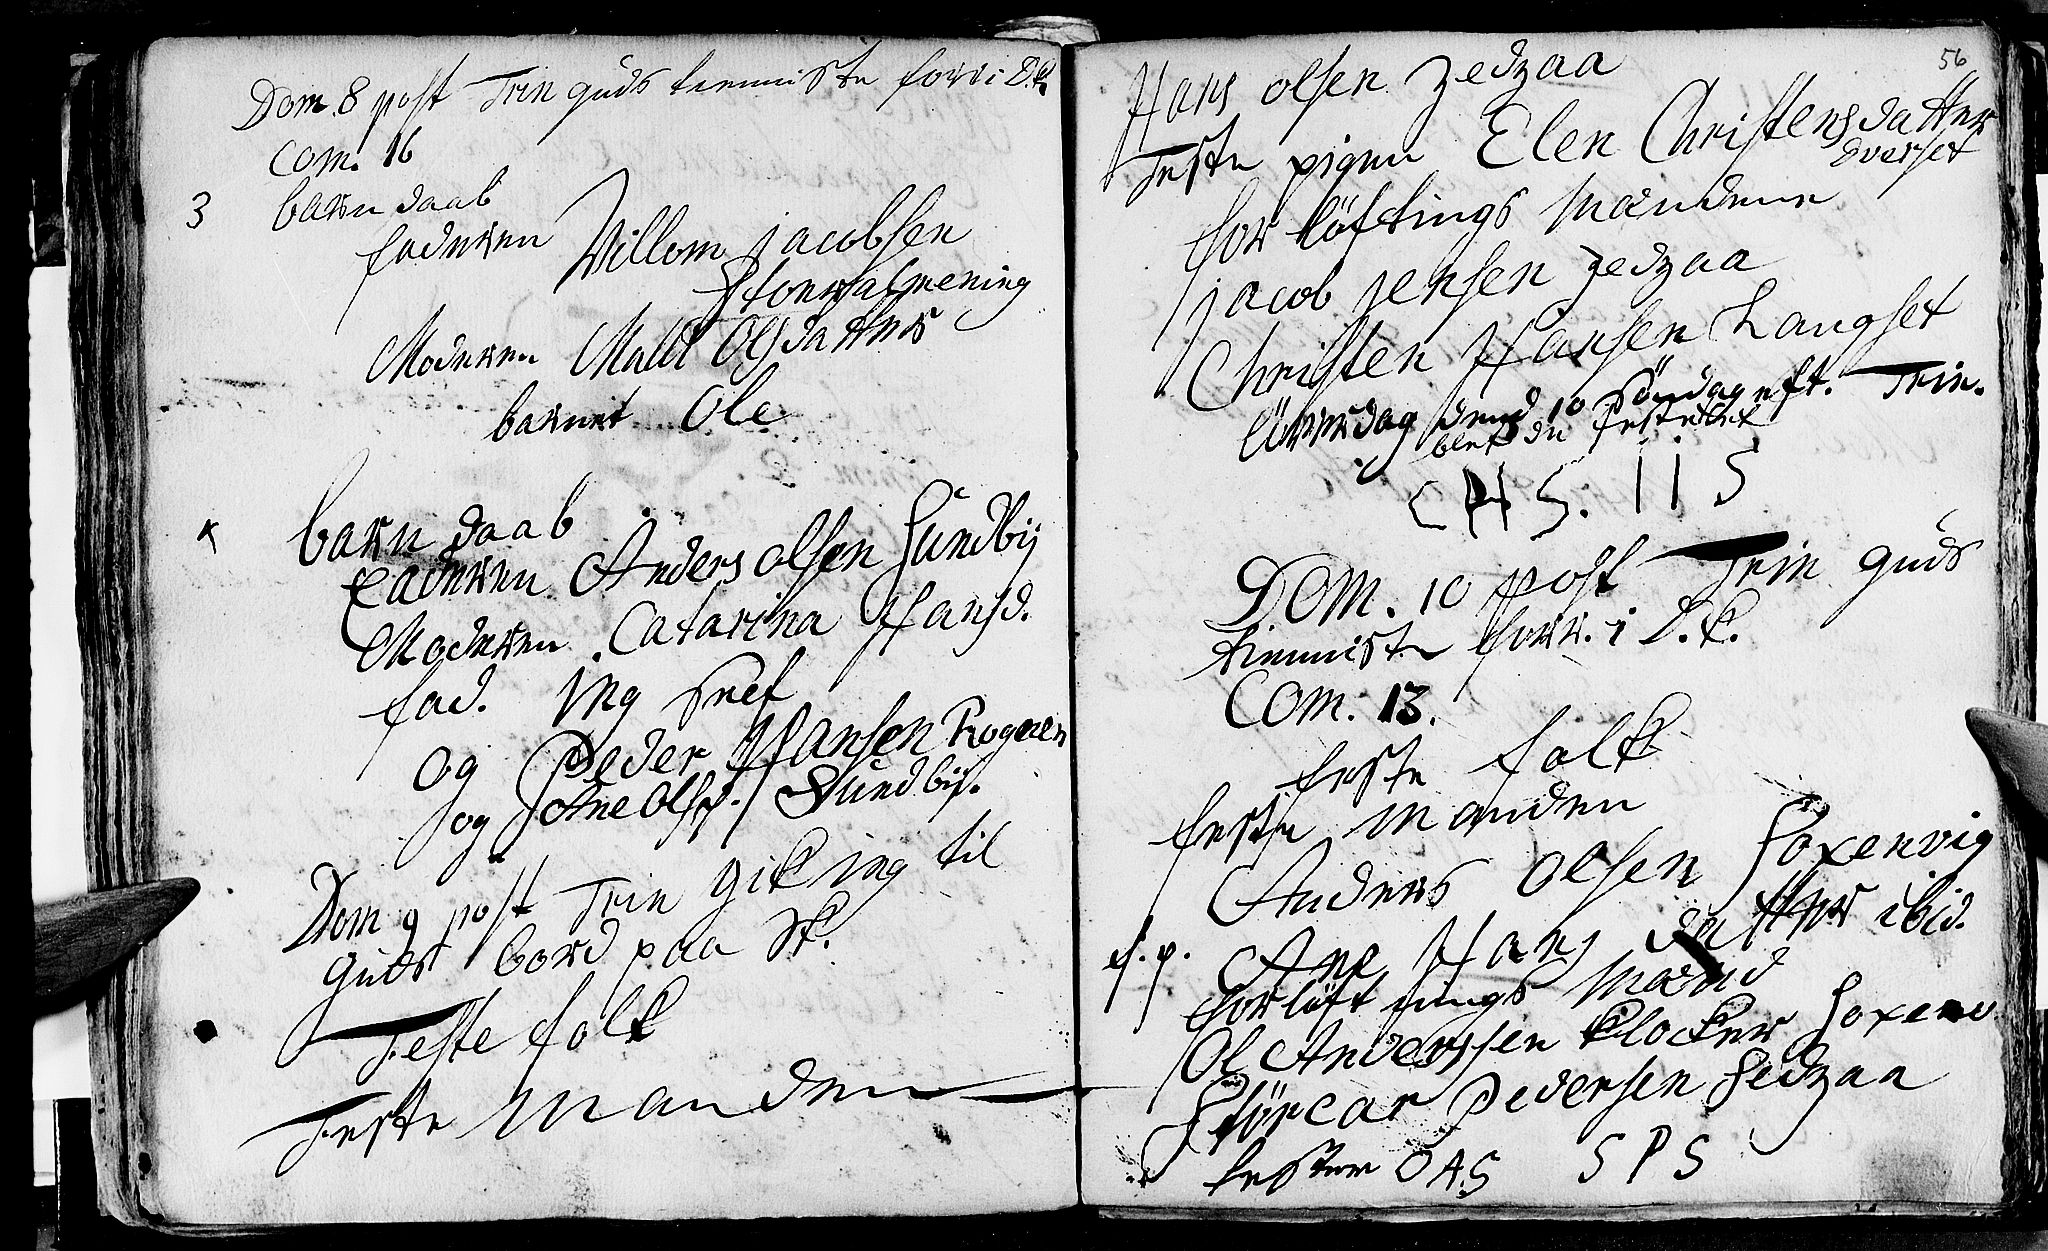 Dom. 8 post Trin guds tienniste forr. i D.k.
Com. 16
3 barn daab
faderen Willom Jacobsen
Storvalmening
Moderen Malli Olsdatter
barnet Ole
barn daab
Faderen Anders olsen Sundbÿ
Moderen Catarina Hansd.
fad. Ing
og Peder Hansen Rognen
og Ane Olsd. Sundbÿ.
Dom 9 post Trin gik ing til
guds bord paa St.
Feste folk
Feste manden
56
Hans olsen zedzaa
Feste pigen Elen Christensdatter
Overset
for löftings mændene
jacob jensen zedzaa
Christen Hansen Langset
löverdag den 10 söndag eft. Trin.
blef de festet
CHS. IIS
Dom. 10 post Trin guds
tienniste forr. i D.k.
Com. 13.
feste folk
feste manden
Anders Olsen Soxenvig
f. p. Ane Hans datter ibid.
forlöftnings mænd
Ol Anderssen klocker Soxenv
Störcar Pedersen Sedzaa
festen OAS SPS